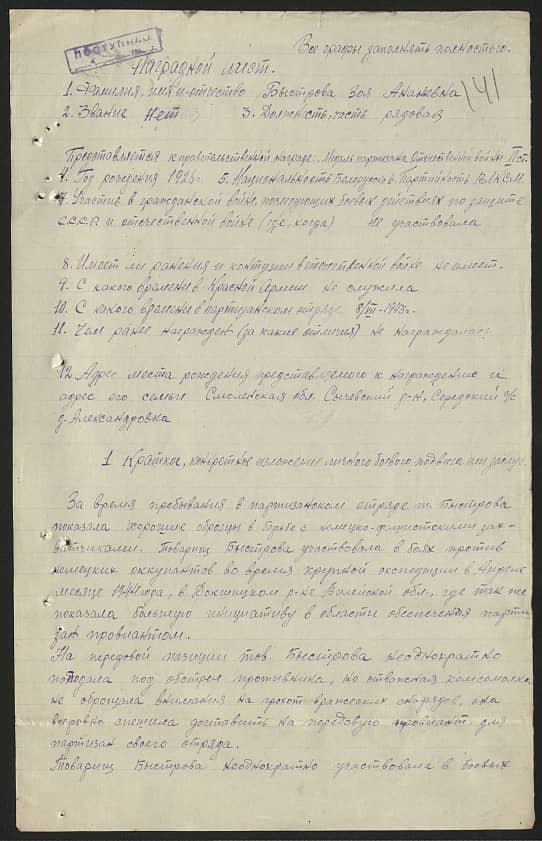 поступил
Все графы заполнять полностью.
Наградной лист.
141
1. Фамилия, имя и отчество Быстрова Зоя Ананевна
2. Звание Нет 3. Должность, часть рядовая
Представляется к правительственной награде: Медаль партизана Отечественной войны II ст.
4. Год рождения 1923г. 5. Национальность Белоруска 6. Партийность ВЛКСМ.
7. Участие в гражданской войне, последующих боевых действиях по защите
СССР и отечественной войне (где, когда) не участвовала
8. Имеет ли ранения и контузии в отечественной войне не имеет.
9. С какого времени в Красной Армии не служила
10. С какого времени в партизанском отряде 8/III-1943г.
11. Чем ранее награжден (за какие отличия) не награждалась
12. Адрес места рождения представляемого к награждению и
адрес его семьи Смоленская обл. Сычевский р-н, Середский с/с
д. Александровка
1 Краткое, конкретное изложение личного боевого подвига или заслуг.
За время пребывания в партизанском отряде т. Быстрова
показала хорошие образцы в борьбе с немецко-фашистскими зах-
ватчиками. Товарищ Быстрова участвовала в боях против
немецких оккупантов во время крупной экспедиции в Апреле
месяце 1944 года, в Докшицком р-не Вилейской обл., где так же
показала большую инициативу в области обеспечения парти
зан провиантом.
На передовой позиции тов. Быстрова неоднократно
попадала под обстрел противника, но отважная комсомолка
не обращала внимания на грохот вражеских снарядов, она
спешила доставить на передовую провиант, для
партизан своего отряда.
Товарищ Быстрова неоднократно участвовала в боевых